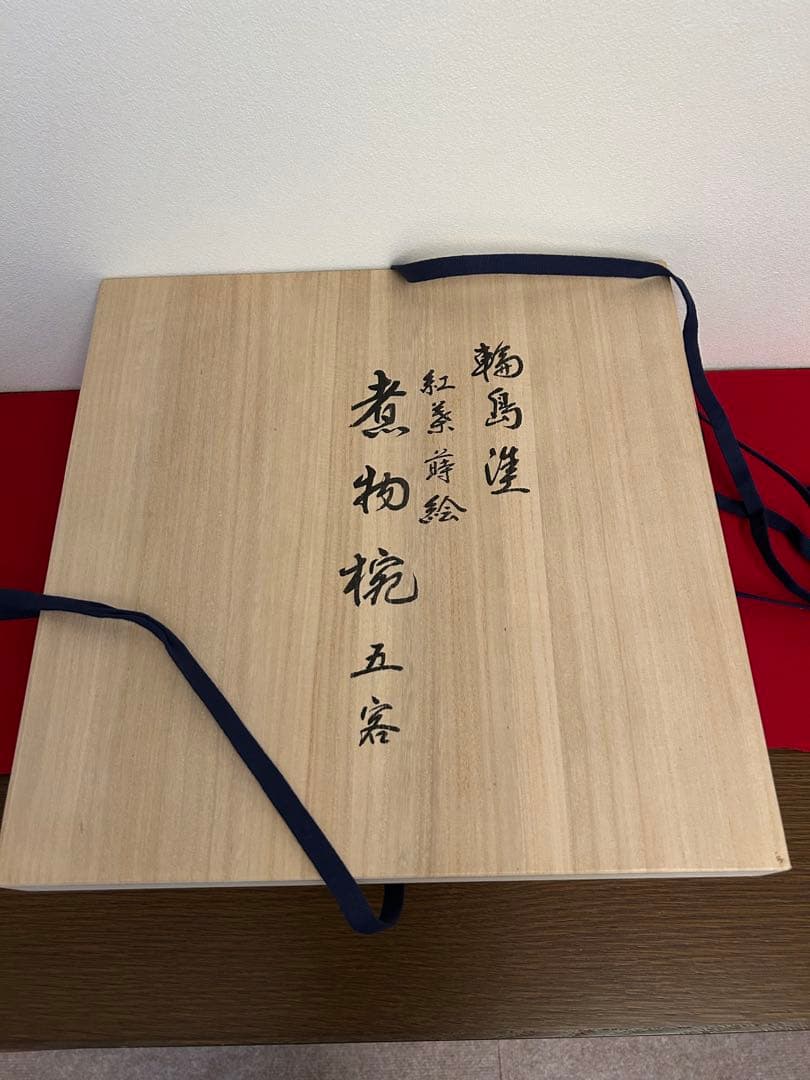 輪島塗
紅葉蒔絵
煮物椀 五客